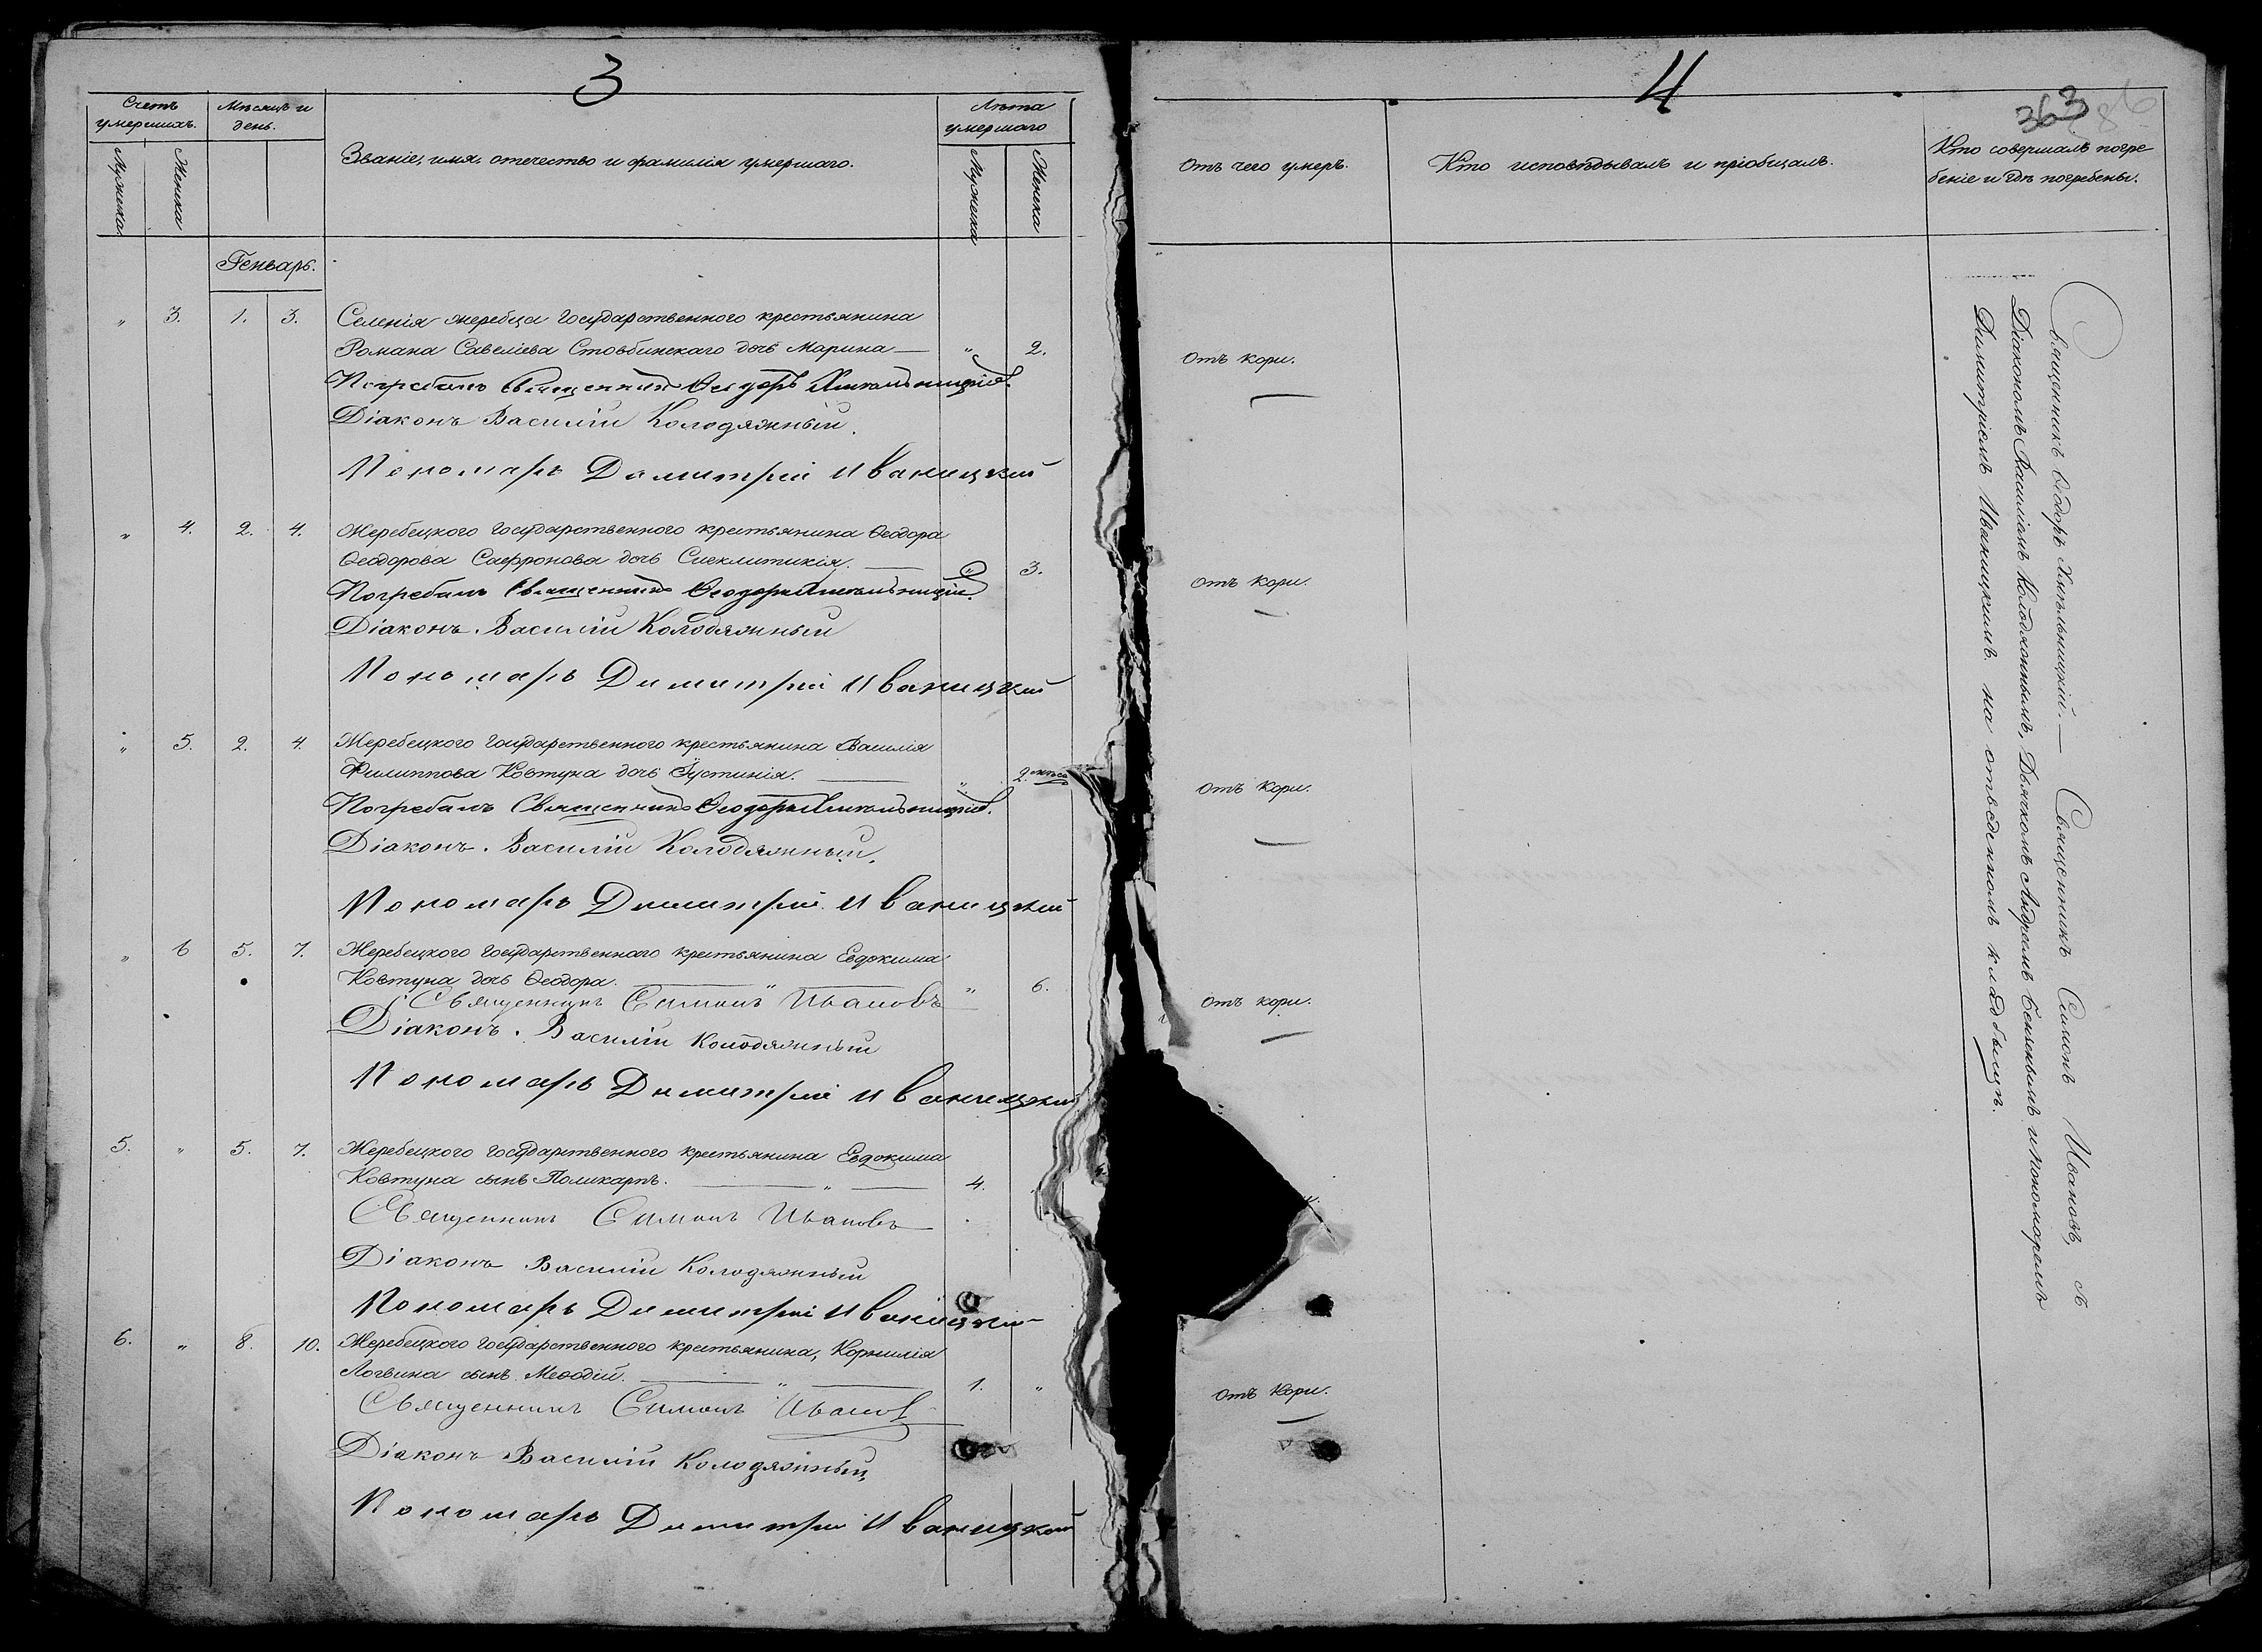 3
Счетъ умершихъ.
Мѣсяцъ и день.
Званіе, имя, отечество и фамилія умершаго.
Лѣта умершаго
Мужеска
Женска
Мужеска
Женска
Генварь.
" 3. 1. 3. Селенія жеребца Государственного крестьянина
Романа Савеліева Стовбинскаго дочь Марина — " 2.
Погребалъ Священникъ Ѳеодоръ Хмельницкій.
Діаконъ Василій Колодяжный.
Пономарь Димитрій Иваницкій
" 4. 2. 4. Жеребецкого Государственного крестьянина Ѳеодора
Ѳеодорова Сафронова дочь Сиклитикія. — " 3.
Погребалъ Священникъ Ѳеодоръ Хмельницкій.
Діаконъ. Василій Колодяжный
Пономарь Димитрій Иваницкій
" 5. 2. 4. Жеребецкого Государственного крестьянина Василія
Филиппова Ковтуна дочь Іустинія. — " 2.
Погребалъ Священникъ Ѳеодоръ Хмельницкій.
Діаконъ. Василій Колодяжный.
Пономарь Димитрій Иваницкій
" 6 5. 7. Жеребецкого Государственнаго крестьянина Евдокима
Ковтуна дочь Ѳеодора. — " — " 6.
Священникъ Симонъ Ивановъ
Діаконъ. Василій Колодяжный
Пономарь Димитрій Иваницкій
5. " 5. 7. Жеребецкого Государственного крестьянина Евдокима
Ковтуна сынъ Поликарпъ. — " — 4.
Священникъ Симонъ Ивановъ
Діаконъ Василій Колодяжный
Пономарь Димитрій Иваницкій
6. " 8. 10. Жеребецкого Государственного крестьянина, Корнилія
Логвина сынъ Меѳодій. — " — 1. "
Священникъ Симонъ Ивановъ
Діаконъ Василій Колодяжный
Пономарь Димитрій Иваницкій
4
363
386
Отъ чего умеръ.
Кто исповѣдывалъ и пріобщалъ.
Кто совершалъ погре
беніе и гдѣ погребены.
Отъ кори.
Отъ кори.
Отъ кори.
Отъ кори.
Отъ кори.
Священникъ Ѳеодоръ Хмѣльницкій. — Священникъ Симонъ Ивановъ, съ
Діакономъ Василіемъ Колодяжнымъ, Дьячкомъ Андреемъ и пономаремъ
Димитріемъ Иваницкимъ. на отведенномъ кладбыщѣ.